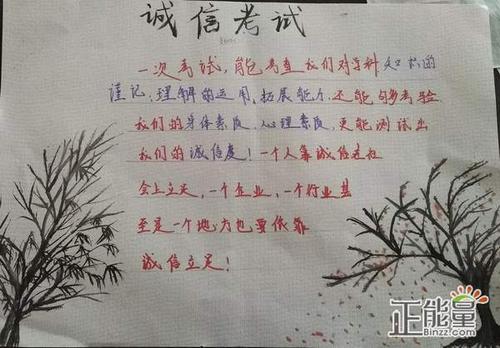 诚信考试
一次考试,能考查我们对学科知识的
谨记,理解的运用,拓展能力,还能够考验
我们的身体素质,心理素质,更能测试出
我们的诚信度!一个人靠诚信在社
会上立足,一个企业,一个行业甚
至是一个地方也要依靠
诚信立足!
正能量
Binzz.com